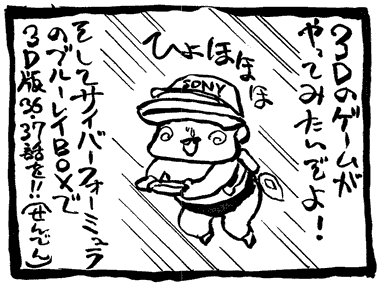 3Dのゲームが
やってみたいぞよ!
ひょほほほほ
SONY
そしてサイバーフォーミュラ
のブルーレイBOXで
3D版36・37話を!!(せんでん)